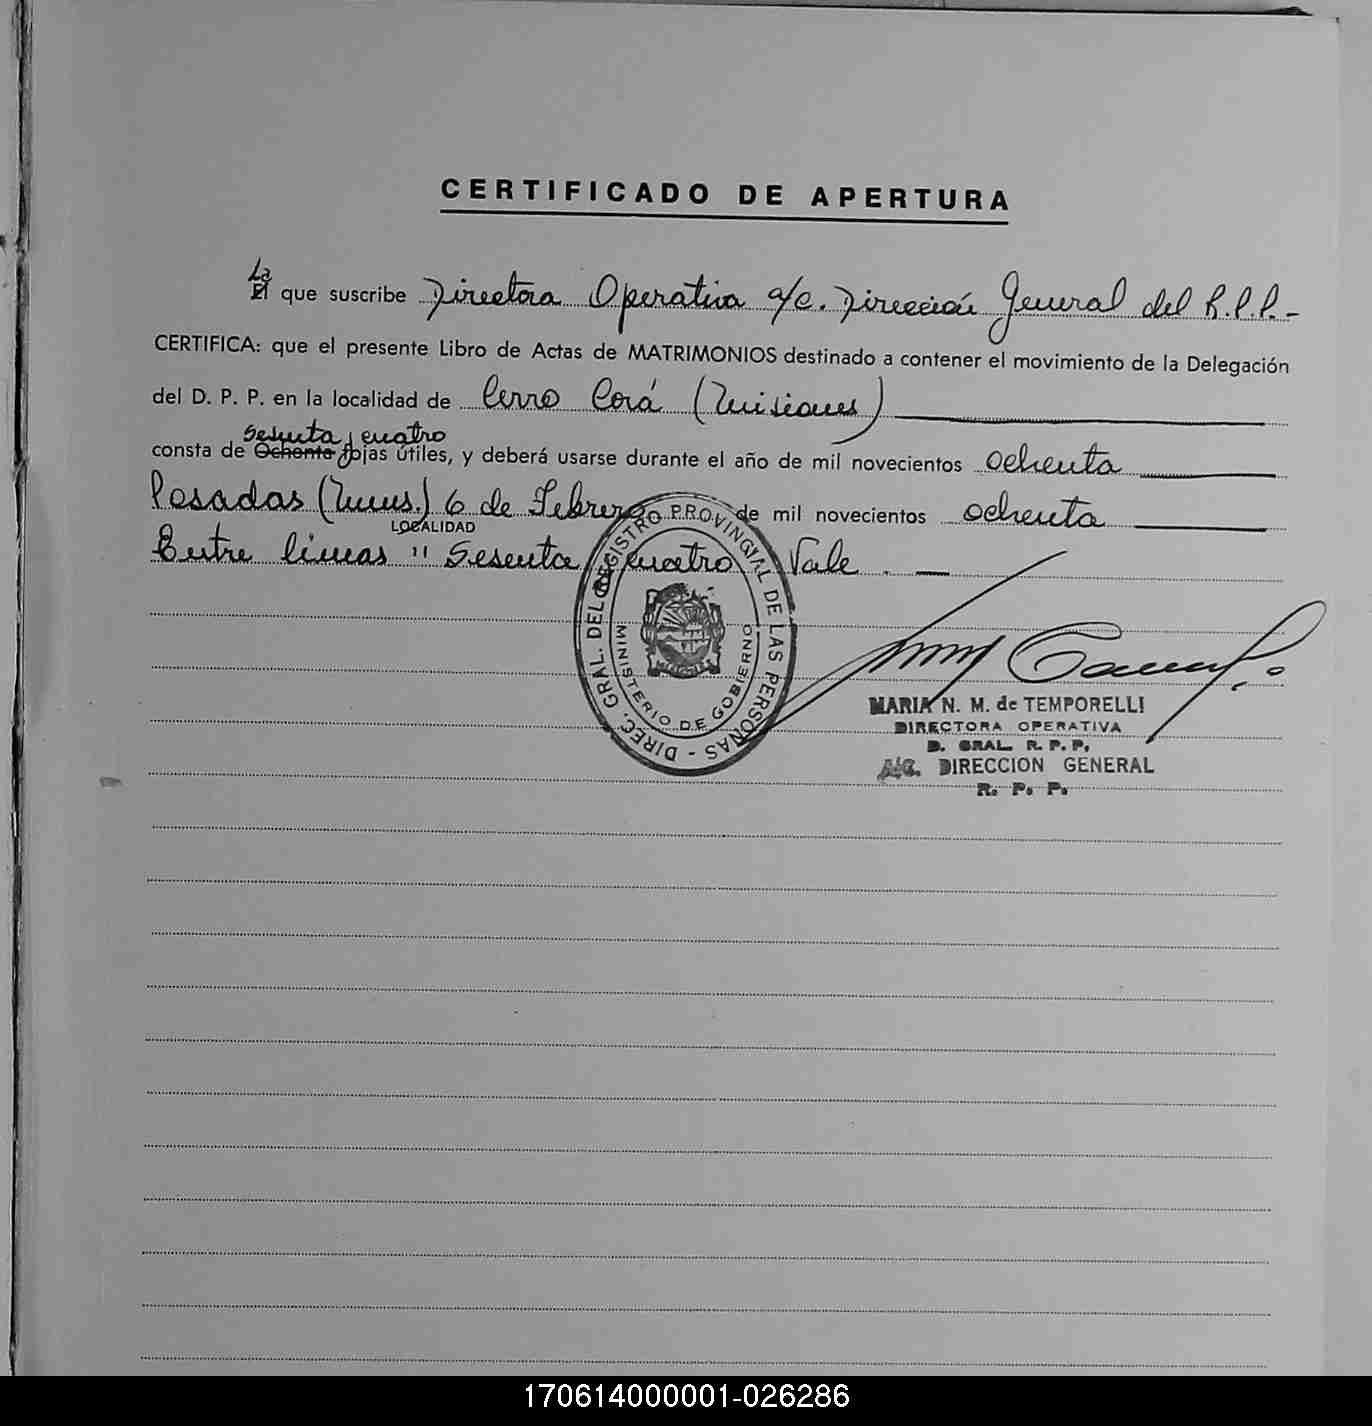 CERTIFICADO DE APERTURA
La
El que suscribe Directora Operativa a/c. Dirección General del R.P.P.-
CERTIFICA: que el presente Libro de Actas de MATRIMONIOS destinado a contener el movimiento de la Delegación
del D. P. P. en la localidad de Cerro Corá (Misiones)
Sesenta y cuatro
consta de Ochenta fojas útiles, y deberá usarse durante el año de mil novecientos ochenta
Posadas (Mnes.) 6 de Febrero de mil novecientos ochenta
LOCALIDAD
Entre líneas " Sesenta y cuatro Vale . —
DIREC. GRAL. DEL REGISTRO PROVINCIAL DE LAS PERSONAS -
MINISTERIO DE GOBIERNO
MARIA N. M. de TEMPORELLI
DIRECTORA OPERATIVA
D. GRAL. R. P. P.
A/C. DIRECCION GENERAL
R. P. P.
170614000001-026286